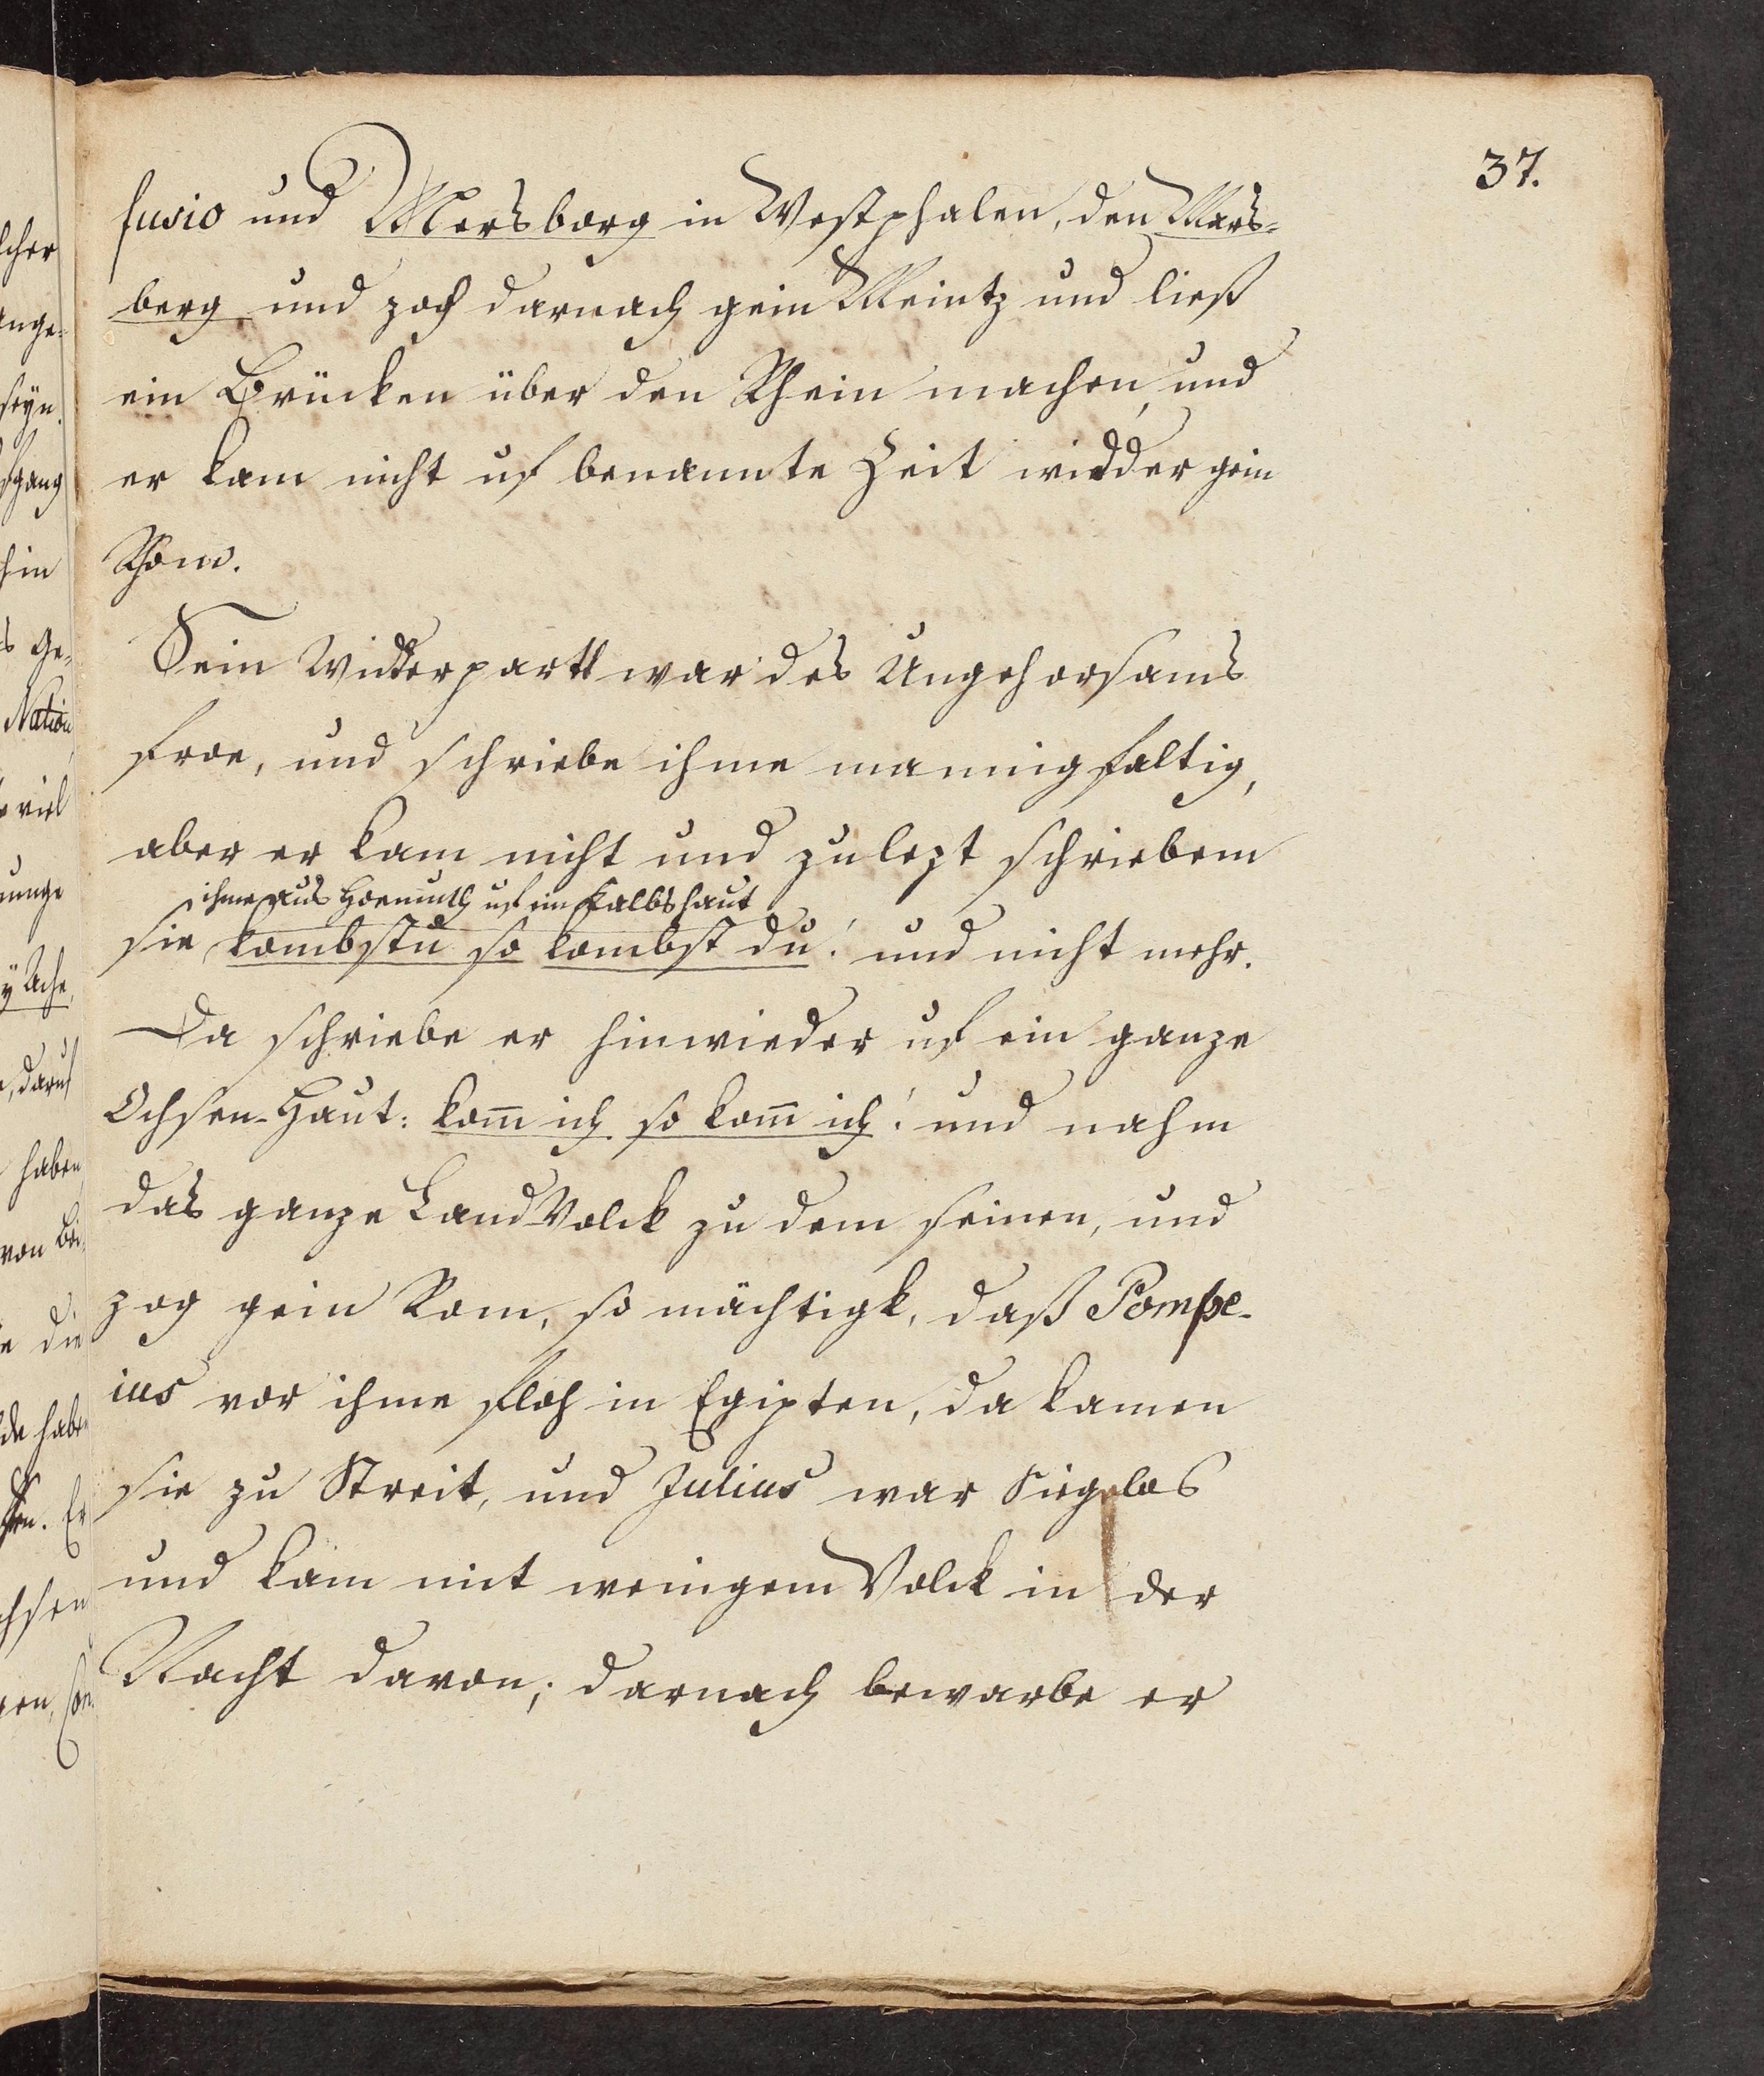 37.
fusio und Mersborg in Westphalen, den Mars-
berg und zoch darnach gein Meintz und ließ
ein Brücken über den Rhein machen, und
er kam nicht uf benannte Zeit widder gein
Rhom.
Sein Widderpartt war des Ungehorsams
froe, und schriebe ihme mannigfaltig,
aber er kam nicht und zulezt schriebem
ihme aus Homuth uf ein Kalbshaut
sie kombstu so kombst du! und nicht mehr.
Da schriebe er hinwieder uf ein ganze
Ochsen-Haut: kom̄ ich so kom̄ ich! und nahm
das ganze Land Volck zu dem seinen, und
zog gein Rom, so mächtigk, daß Pompe-
ius vor ihme floh in Egipten, da kamen
sie zu Streit, und Julius war Siegelos
und kam mit weingem Volck in der
Nacht davon; darnach bewarbe er
lcher
ange-
seyn.
hin
Ge-
Nation
viel
Ache,
daruf
haben
von Bei-
die
habe
Er